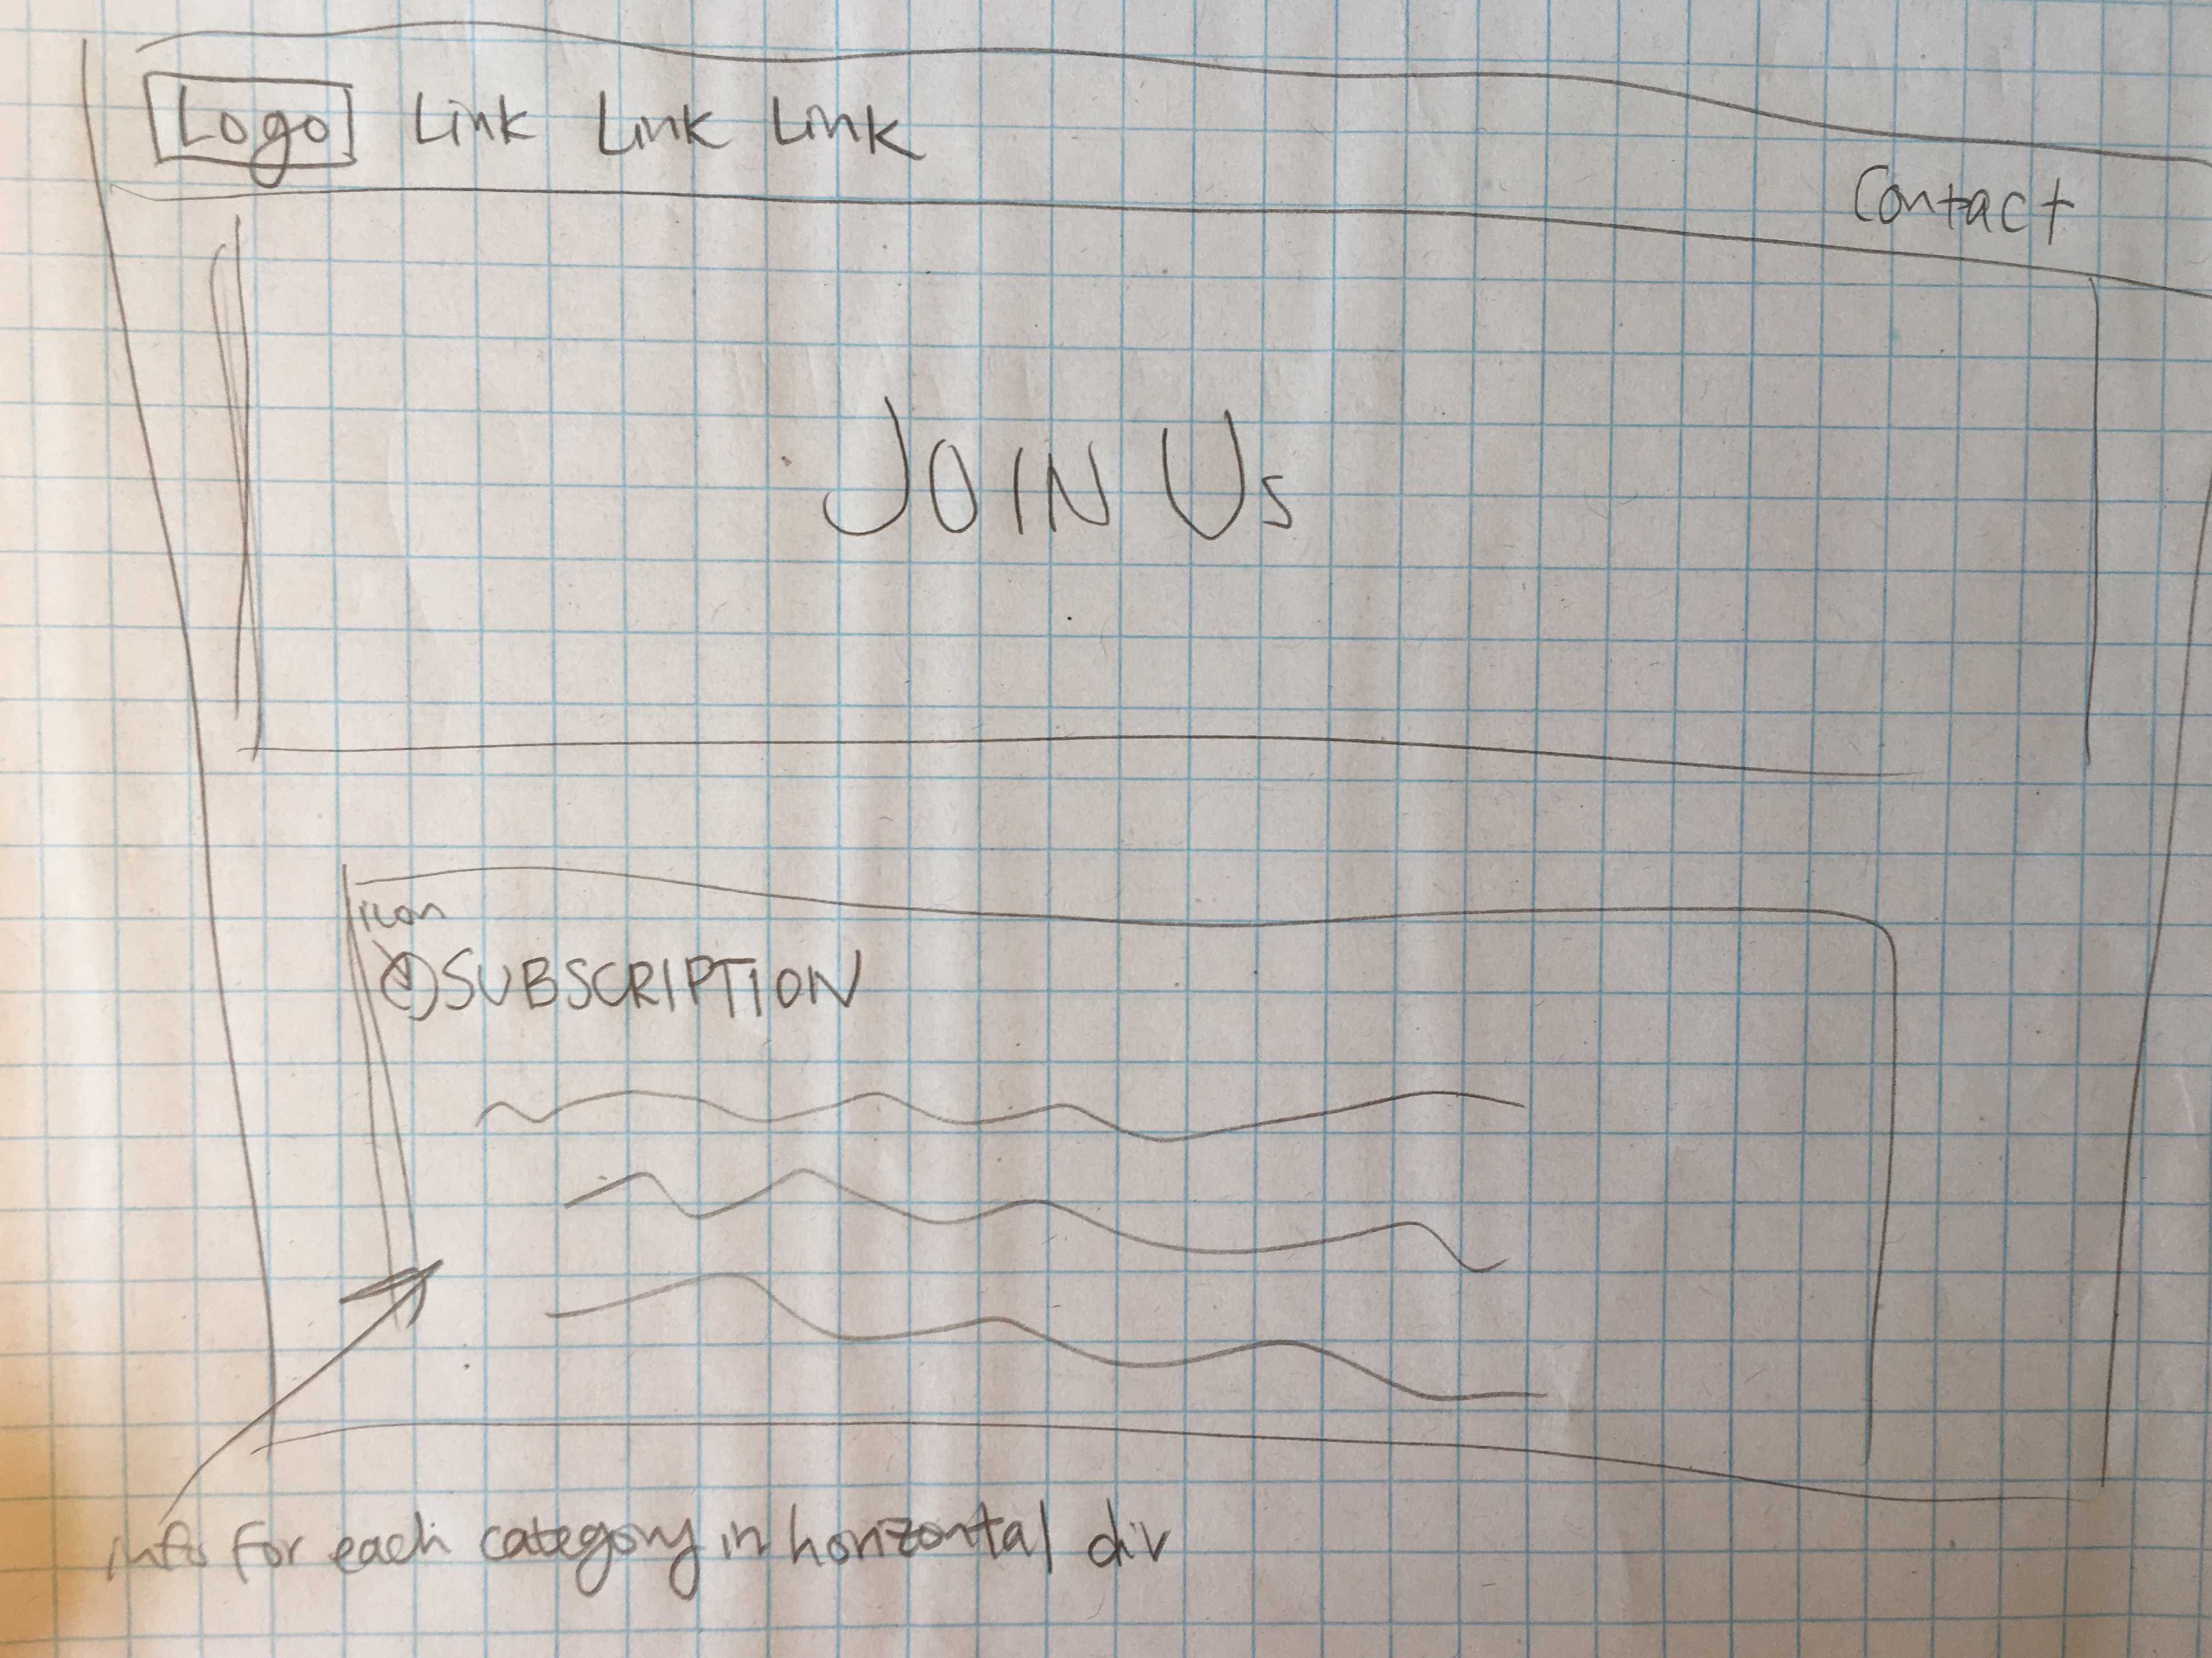 Logo Link Link Link
Contact
JOIN Us
icon
SUBSCRIPTION
info for each category in horizontal div